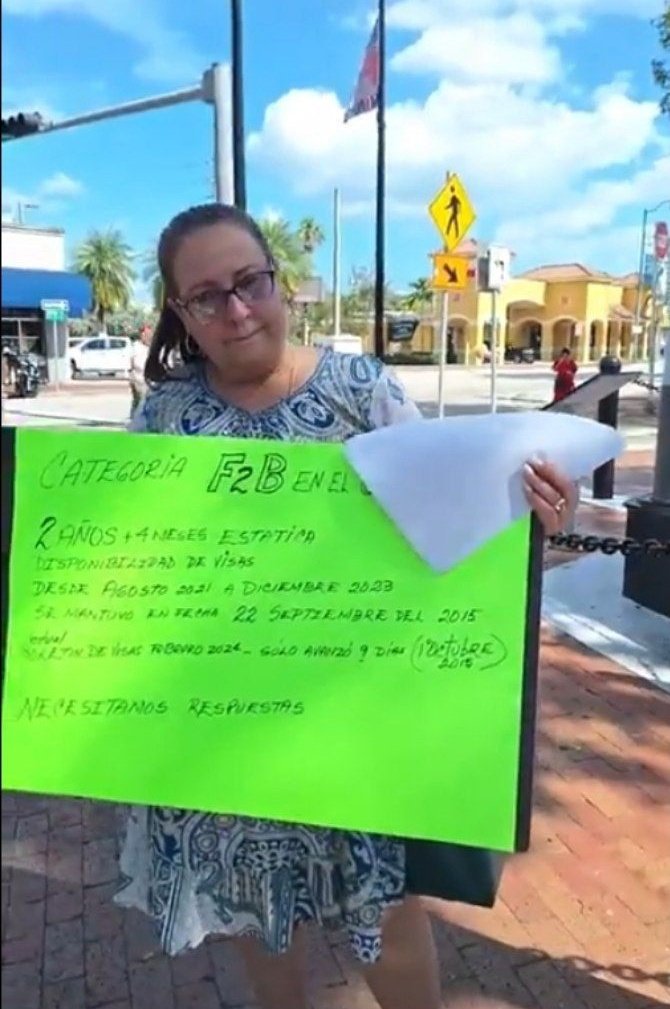 CATEGORIA F2B EN EL
2 AÑOS + 4 MESES ESTATICA
DISPONIBILIDAD DE VISAS
DESDE AGOSTO 2021 A DICIEMBRE 2023
SE MANTUVO EN FECHA 22 SEPTIEMBRE DEL 2015
actual
BOLETIN DE VISAS FEBRERO 2024 - SÓLO AVANZÓ 9 DÍAS (1° OCTUBRE
2015)
NECESITAMOS RESPUESTAS